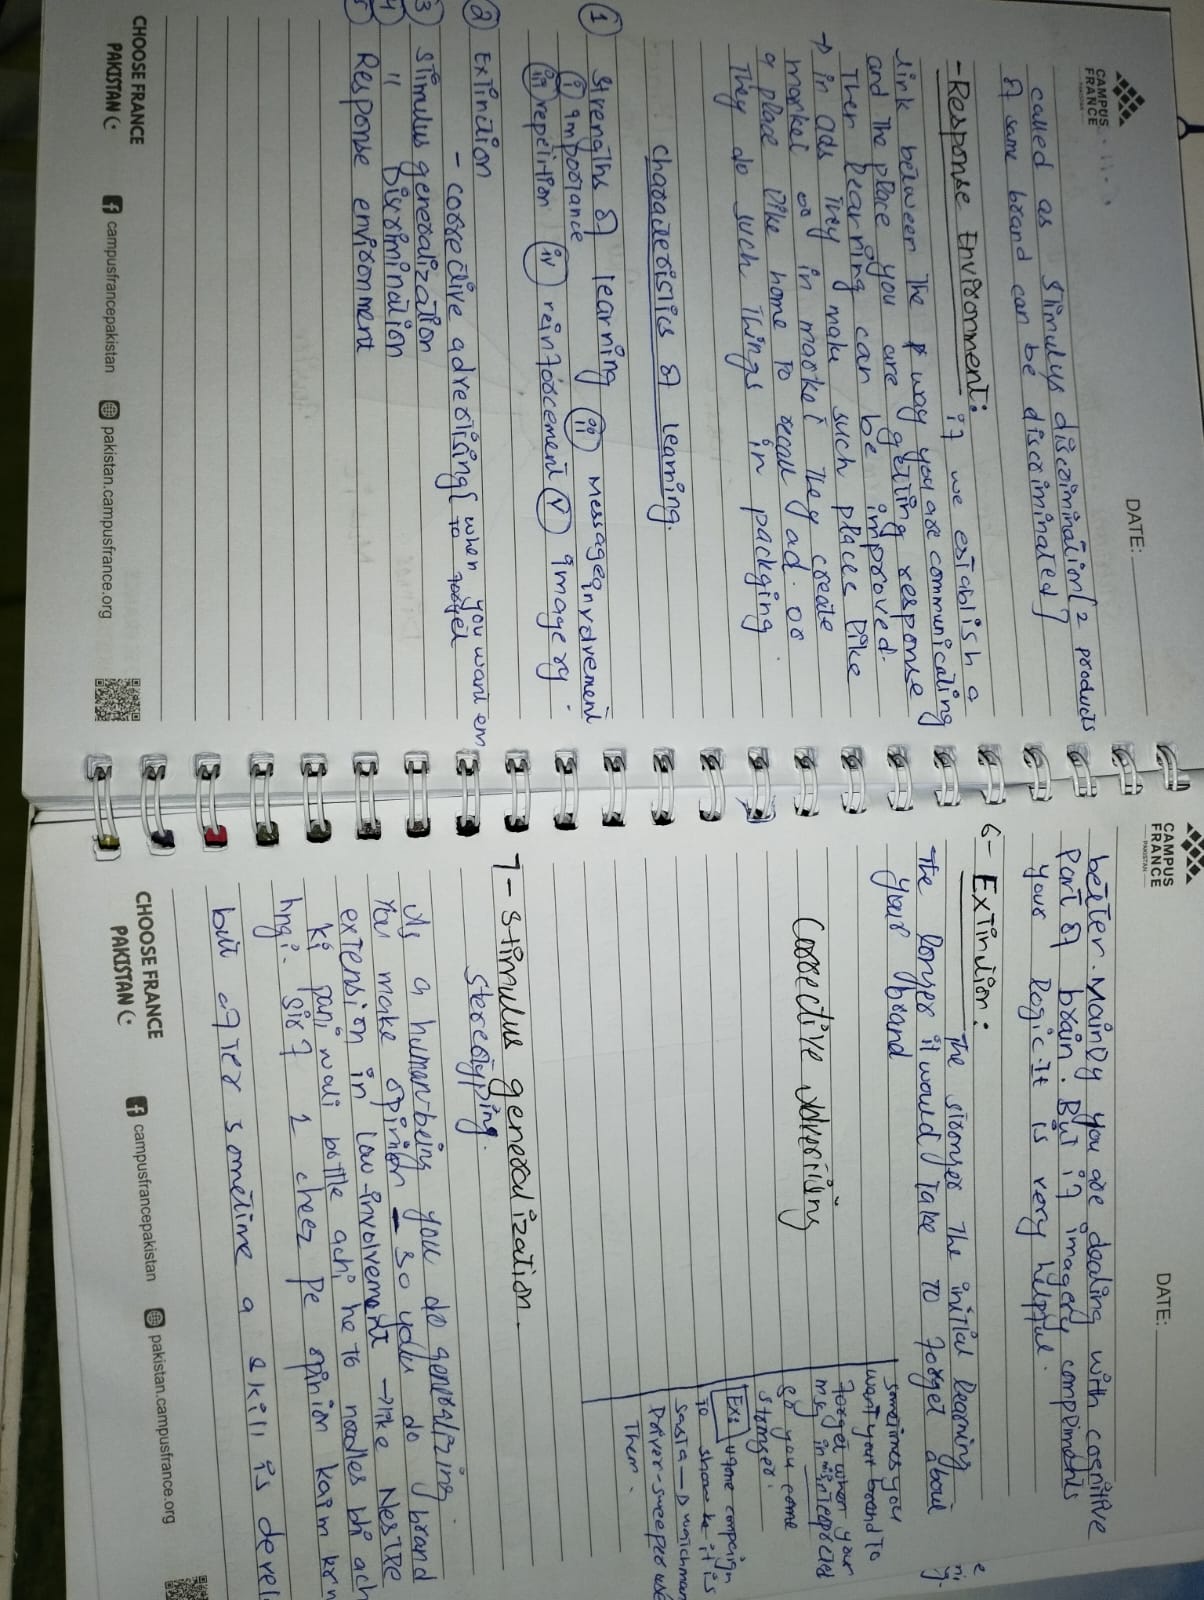 CAMPUS
FRANCE
PAKISTAN
DATE:
called as stimulus discrimination [2 products
of same brand can be discriminated]
- Response Environment:
if we establish a
link between the way you are communicating
and the place you are getting response
Then learning can be improved.
→ in ads they make such places like
market or in market they create
a place like home to recall ad. or
They do such things in packging
characteristics of learning.
① strengths of learning
ⓘ importance ⓘⓘ Message involvement
ⓘⓘⓘ repetition ⓘⓥ reinforcement ⓥ imagery.
② Extinction
- corrective advertising [when you want em
to forget
3 Stimulus generalization
4 " Discrimination
5 Response environment
CHOOSE FRANCE
PAKISTAN
campusfrancepakistan
pakistan.campusfrance.org
CAMPUS
FRANCE
PAKISTAN
DATE:
better. Mainly you are dealing with cognitive
Part of brain. But if imagery compliments
your logic. It is very helpful.
6- Extinction:
The stronger the initial learning
the longer it would take to forget about
your brand
sometimes you
want your brand to
forget when your
msg
so you come
stronger.
Corrective advertising
Ex: ufone
to show it is
sasta → watchman
Driver-sweeper use
Them.
7- Stimulus generalization.
stereotyping.
As a human-being you do generalizing.
You make opinion - so you do brand
extension in low-involvement → like Nestle
ki pani wali bottle achi he to noodles bhi ach
hngi. Sirf 1 cheez pe opinion kaim krn
but after sometime a skill is devel
CHOOSE FRANCE
PAKISTAN
campusfrancepakistan
pakistan.campusfrance.org